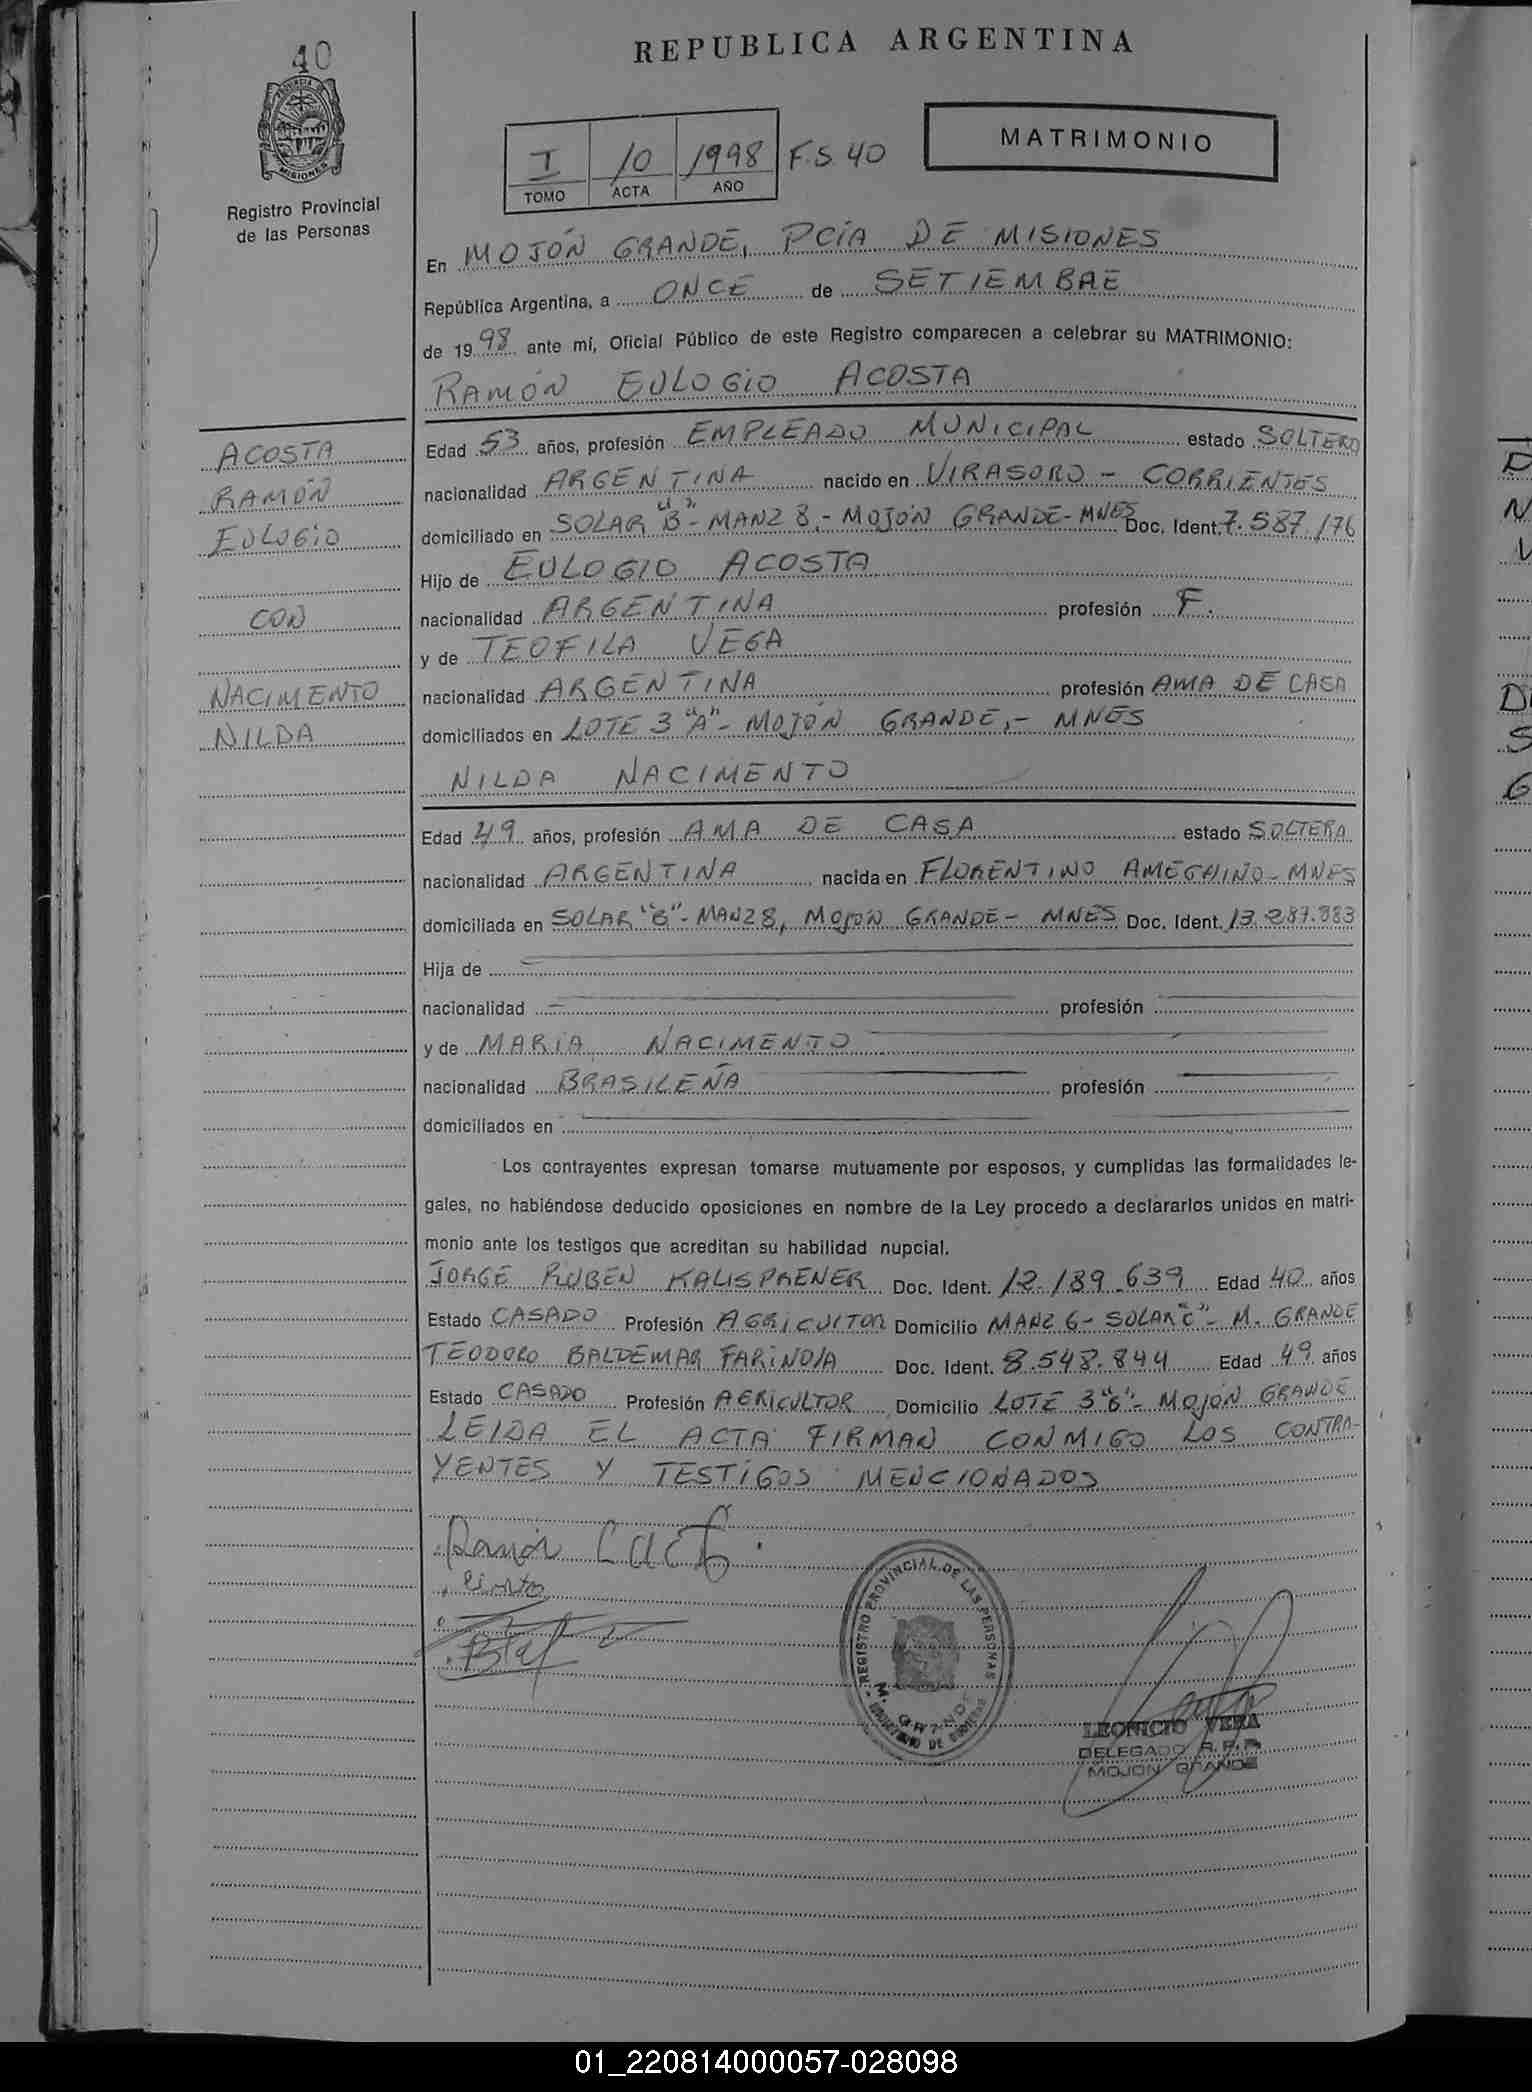 40
PROVINCIA DE
MISIONES
Registro Provincial
de las Personas
REPUBLICA ARGENTINA
I 10 1998 F.S. 40
TOMO ACTA AÑO
MATRIMONIO
En MOJÓN GRANDE, PCIA DE MISIONES
República Argentina, a ONCE de SETIEMBRE
de 1998 ante mí, Oficial Público de este Registro comparecen a celebrar su MATRIMONIO:
RAMÓN EULOGIO ACOSTA
ACOSTA
RAMÓN
EULOGIO
CON
NACIMENTO
NILDA
Edad 53 años, profesión EMPLEADO MUNICIPAL estado SOLTERO
nacionalidad ARGENTINA nacido en VIRASORO - CORRIENTES
domiciliado en SOLAR "B"- MANZ 8.- MOJÓN GRANDE- MNES Doc. Ident. 7.587.176
Hijo de EULOGIO ACOSTA
nacionalidad ARGENTINA profesión F.
y de TEOFILA VEGA
nacionalidad ARGENTINA profesión AMA DE CASA
domiciliados en LOTE 3 "A"- MOJÓN GRANDE,- MNES
NILDA NACIMENTO
Edad 49 años, profesión AMA DE CASA estado SOLTERA
nacionalidad ARGENTINA nacida en FLORENTINO AMEGHINO- MNES
domiciliada en SOLAR "B"- MANZ 8, MOJÓN GRANDE- MNES Doc. Ident. 13.287.883
Hija de
nacionalidad profesión
y de MARIA NACIMENTO
nacionalidad BRASILEÑA profesión
domiciliados en
Los contrayentes expresan tomarse mutuamente por esposos, y cumplidas las formalidades le-
gales, no habiéndose deducido oposiciones en nombre de la Ley procedo a declararlos unidos en matri-
monio ante los testigos que acreditan su habilidad nupcial.
JORGE RUBEN KALISPRENER Doc. Ident. 12.189.639 Edad 40 años
Estado CASADO Profesión AGRICULTOR Domicilio MANZ 6- SOLAR "C"- M. GRANDE
TEODORO BALDEMAR FARINOIA Doc. Ident. 8.548.844 Edad 49 años
Estado CASADO Profesión AGRICULTOR Domicilio LOTE 3 "6"- MOJÓN GRANDE
LEIDA EL ACTA FIRMAN CONMIGO LOS CONTRA-
YENTES Y TESTIGOS MENCIONADOS
Ramón
REGISTRO PROVINCIAL DE LAS PERSONAS
M. GRANDE
LEONICIO VERA
DELEGADO R.P.P.
MOJON GRANDE
01_220814000057-028098